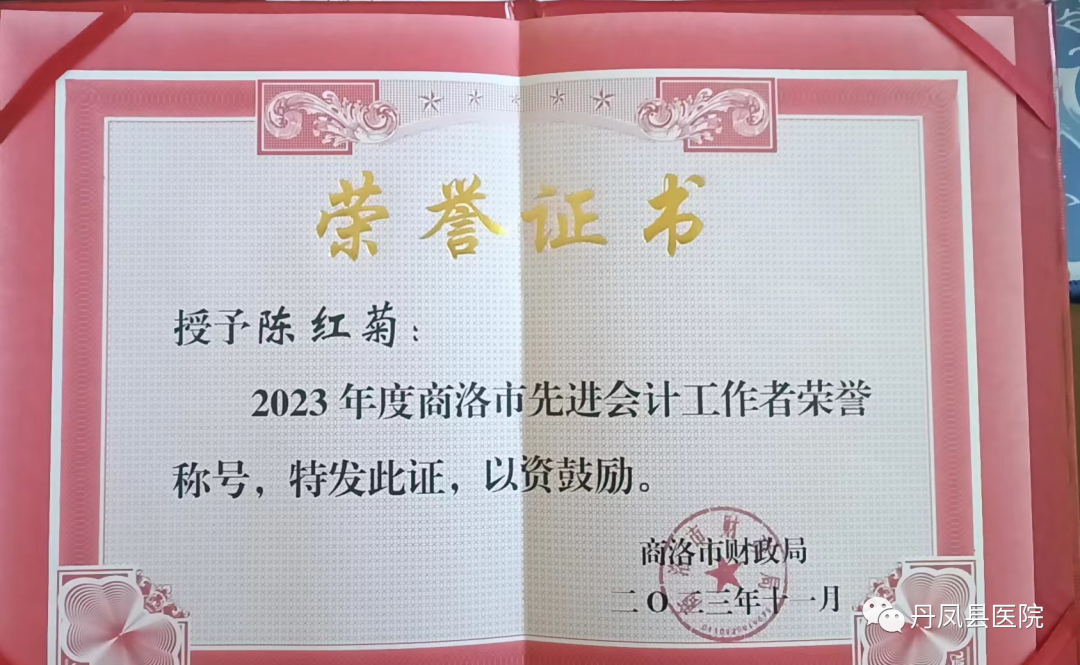 荣誉证书
授予陈红菊：
2023年度商洛市先进会计工作者荣誉
称号，特发此证，以资鼓励。
商洛市财政局
二〇二三年十一月
商洛市财政局
丹凤县医院